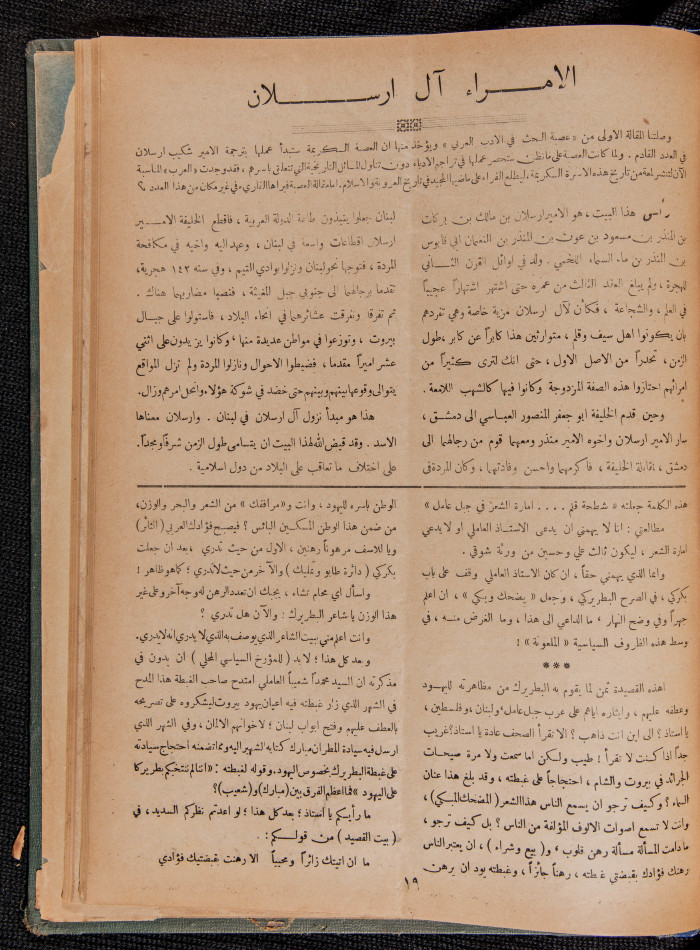 الامراء آل ارسلان
وصلتنا المقالة الاولى من « عصبة البحث في الادب العربي » ويؤخذ منها ان العصبة الكريمة ستبدأ عملها بترجمة الامير شكيب ارسلان
في العدد القادم . ولما كانت العصبة على ما نظن ستحصر عملها في تراجم الادباء دون تناول المسائل التاريخية التي تتعلق باسرهم ، فقد وجدت « العرب » المناسبة
الآن لتنشر لمعة من تاريخ هذه الاسرة الكريمة، ليطلع القراء على ماضيها المجيد في تاريخ العروبة والاسلام. اما مقالة العصبة فيراها القارىء في غير مكان من هذا العدد
رأس هذا البيت ، هو الامير ارسلان بن مالك بن بركات
بن المنذر بن مسعود بن عون بن المنذر بن النعمان ابي قابوس
بن المنذر بن ماء السماء اللخمي . ولد في اوائل القرن الثاني
للهجرة ، ولم يبلغ العقد الثالث من عمره حتى اشتهر اشتهاراً عجيباً
في العلم ، والشجاعة ، فكأن لآل ارسلان مزية خاصة وهي تفردهم
بان يكونوا اهل سيف وقلم ، متوارثين هذا كابراً عن كابر ، طول
الزمن ، تحدراً من الاصل الاول ، حتى انك لترى كثيراً من
امرائهم احتازوا هذه الصفة المزدوجة وكانوا فيها كالشهب اللامعة .
وحين قدم الخليفة ابو جعفر المنصور العباسي الى دمشق ،
سار الامير ارسلان واخوه الامير منذر ومعهما قوم من رجالهما الى
دمشق ، لمقابلة الخليفة ، فاكرمهما واحسن وفادتهما ، وكان المردة في
لبنان جعلوا ينبذون طاعة الدولة العربية ، فاقطع الخليفة الامير
ارسلان اقطاعات واسعة في لبنان ، وعهد اليه واخيه في مكافحة
المردة ، فتوجها نحو لبنان ونزلوا بوادي التيم ، وفي سنة ١٤٢ هجرية،
تقدما برجالهما الى جنوبي جبل المغيثة ، فنصبا مضاربهما هناك .
ثم تفرقا وتفرقت عشائرهما في انحاء البلاد ، فاستولوا على جبال
بيروت ، وتوزعوا في مواطن عديدة منها ، وكانوا يزيدون على اثني
عشر اميراً مقدما ، فضبطوا الاحوال ونازلوا المردة ولم تزل المواقع
يتوالى وقوعها بينهم وبينهم حتى خضد في شوكة هؤلاء وانحل امرهم وزال.
هذا هو مبدأ نزول آل ارسلان في لبنان . وارسلان معناها
الاسد . وقد قيض الله لهذا البيت ان يتسامى طول الزمن شرفاً ومجداً،
على اختلاف ما تعاقب على البلاد من دول اسلامية .
هذه الكلمة جعلته « شطحة قلم .... امارة الشعر في جبل عامل »
مطالعتي : انا لا يهمني ان يدعى الاستاذ العاملي او لا يدعي
امارة الشعر ، ليكون ثالث علي وحسين من ورثة شوقي .
وانما الذي يهمني حقاً ، ان كان الاستاذ العاملي وقف على باب
بكركي ، في الصرح البطريركي ، وجعل « يضحك ويبكي » ، ان اعلم
جهراً وفي وضح النهار ، ما الداعي الى هذا ، وما الغرض منه ، في
وسط هذه الظروف السياسية « الملعونة » !
***
اهذه القصيدة ثمن لما يقوم به البطريرك من مظاهرته لليهود
وعطفه عليهم ، وايثاره اياهم على عرب جبل عامل ولبنان ، وفلسطين ،
يا استاذ ؟ الى اين انت ذاهب ؟ الا تقرأ الصحف عادة يا استاذ؟ غريب
جداً اذا كنت لا تقرأ ! طيب ولكن اما سمعت ولا مرة صيحات
الجرائد في بيروت والشام ، احتجاجاً على غبطته ، وقد بلغ هذا عنان
السماء ؟ وكيف ترجو ان يسمع الناس هذا الشعر ( المضحك المبكي ) ،
وانت لا تسمع اصوات الالوف المؤلفة من الناس ؟ بل كيف ترجو ،
ما دامت المسألة مسألة رهن قلوب ، و( بيع وشراء ) ، ان يعتبر الناس
رهنك فؤادك بقبضتي غبطته ، رهناً جائزاً ، وغبطته يود ان يرهن
الوطن باسره لليهود ، وانت و« مرافقك » من الشعر والبحر والوزن،
من ضمن هذا الوطن المسكين البائس ؟ فيصبح فؤادك العربي ( الثائر )
ويا للاسف مرهوناً رهنين ، الاول من حيث تدري ، بعد ان جعلت
بكركي ( دائرة طابو وتمليك ) والآخر من حيث لا تدري ؛ كما هو ظاهر !
واسأل اي محام تشاء ، يجبك ان تعدد الرهن له وجه آخر وعلى غير
هذا الوزن يا شاعر البطريرك ! والآن هل تدري ؟
وانت اعلم مني ببيت الشاعر الذي يوصف به الذي لا يدري انه لا يدري.
و بعد كل هذا ؛ لا بد ( للمؤرخ السياسي المحلي ) ان يدون في
مذكرته ان السيد محمداً شعيباً العاملي امتدح صاحب الغبطة هذا المدح
في الشهر الذي زار غبطته فيه اعيان يهود بيروت ليشكروه على تصريحه
بالعطف عليهم وفتح ابواب لبنان ؛ لاخوانهم الالمان ، وفي الشهر الذي
ارسل فيه سيادة المطران مبارك كتابه الشهير اليه ومما تضمنه احتجاج سيادته
على غبطة البطريرك بخصوص اليهود. وقوله لغبطته : « اننا لم ننتخبكم بطريركا
على اليهود » فما اعظم الفرق بين ( مبارك ) و( شعيب ) ؟
ما رأيكم يا استاذ ؛ بعد كل هذا ؛ لو اعدتم نظركم السديد، في
( بيت القصيد ) من قولكم :
ما ان اتيتك زائراً ومحيياً الا رهنت بقبضتيك فؤادي
١٩